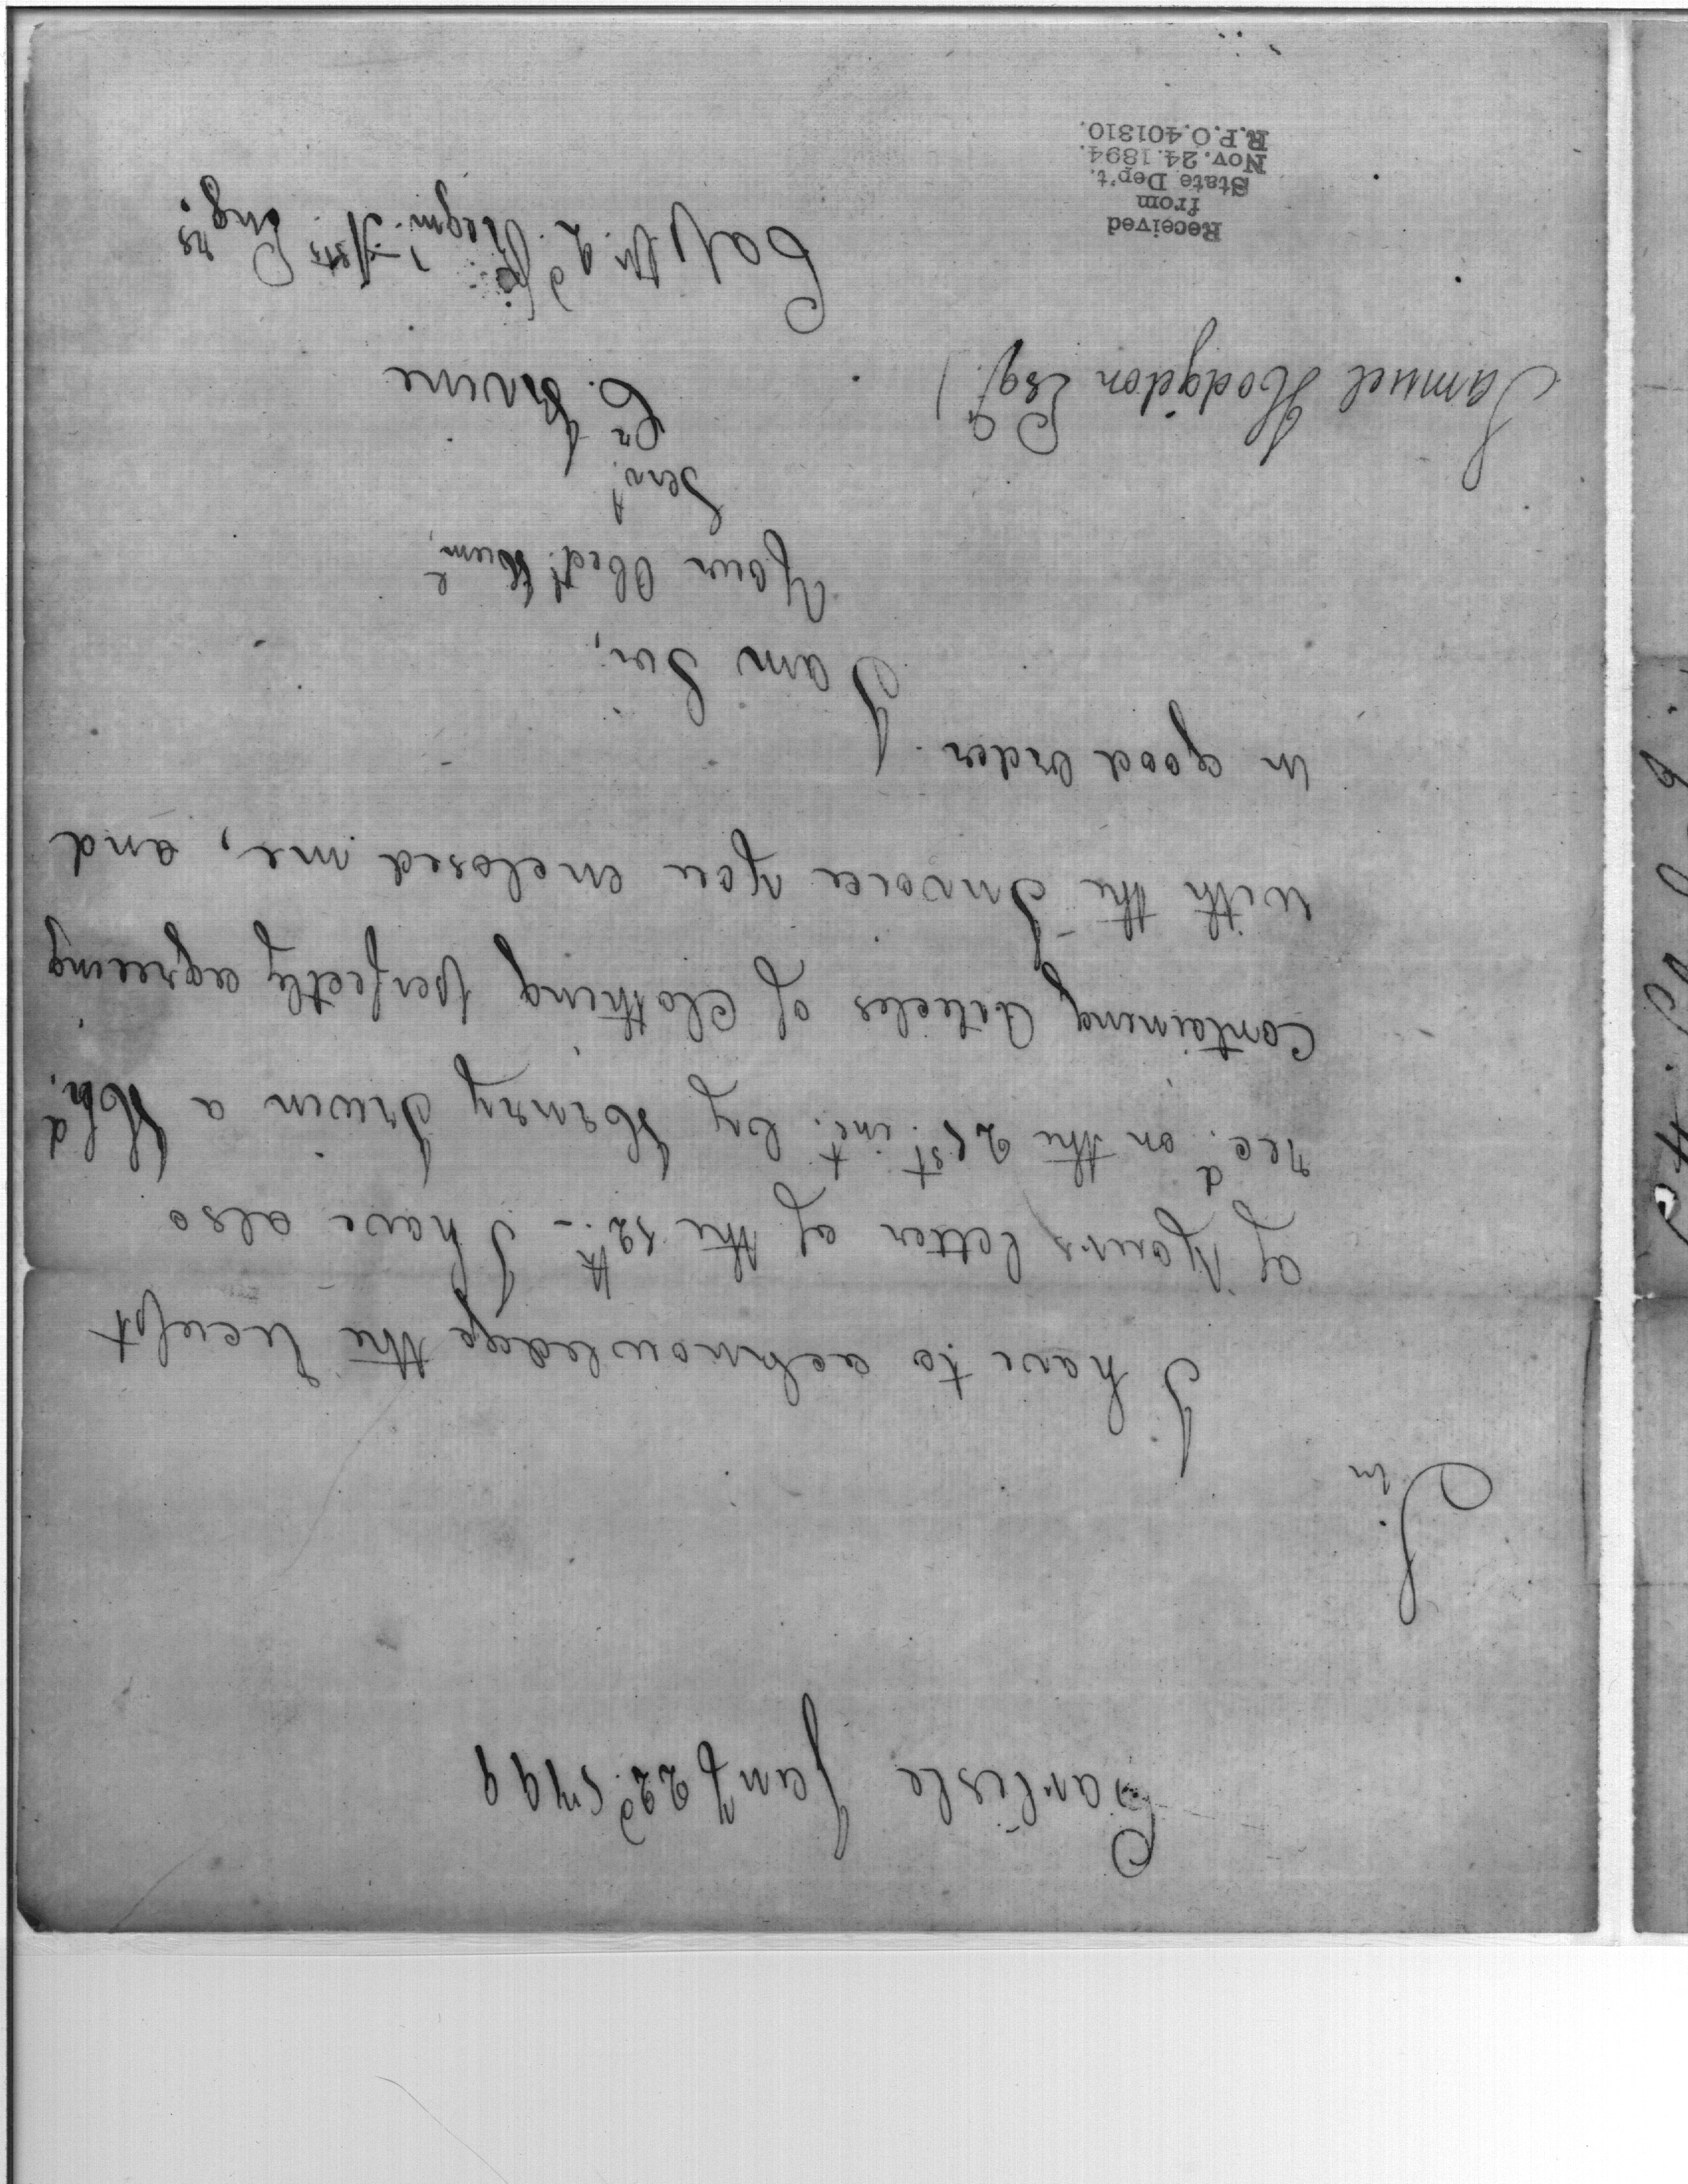 Carlisle Jany 22d 1799
Sir
I have to acknowledge the Receipt
of Yours letter of the 12th - I have also
recd on the 21st inst by Henry Irwin a Hhd
Containing Articles of Clothing perfectly agreeing
with the Invoice you enclosed me, and
in good order.
I am Sir,
Your Obedt Humle
Servt
Cr Irvine
Samuel Hodgdon Esqr
Capt in 2d Regmt Arts Engrs
Received
from
State Dep't.
Nov. 24. 1894.
R.P.O. 401310.